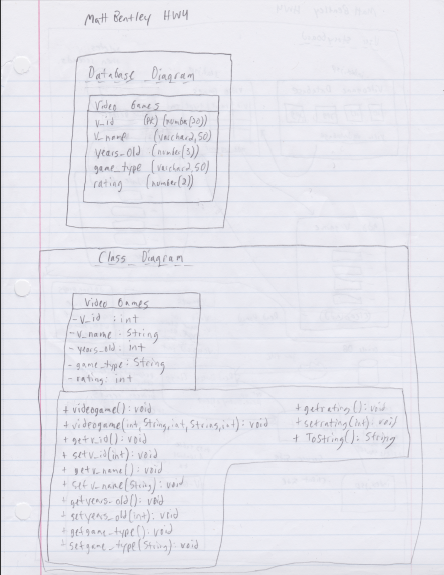 Matt Bentley HW4
Database Diagram
Video Games
v_id (PK) (number(30))
v_name (varchar2,50)
years_old (number(3))
game_type (varchar2,50)
rating (number(2))
Class Diagram
Video Games
- v_id : int
- v_name : String
- years_old : int
- game_type : String
- rating : int
+ videogame() : void
+ videogame(int, String, int, String, int) : void
+ getv_id() : void
+ setv_id(int) : void
+ getv_name() : void
+ setv_name(String) : void
+ getyears_old() : void
+ getyears_old(int) : void
+ getgame_type() : void
+ setgame_type(String) : void
+ getrating() : void
+ setrating(int) : void
+ ToString() : String